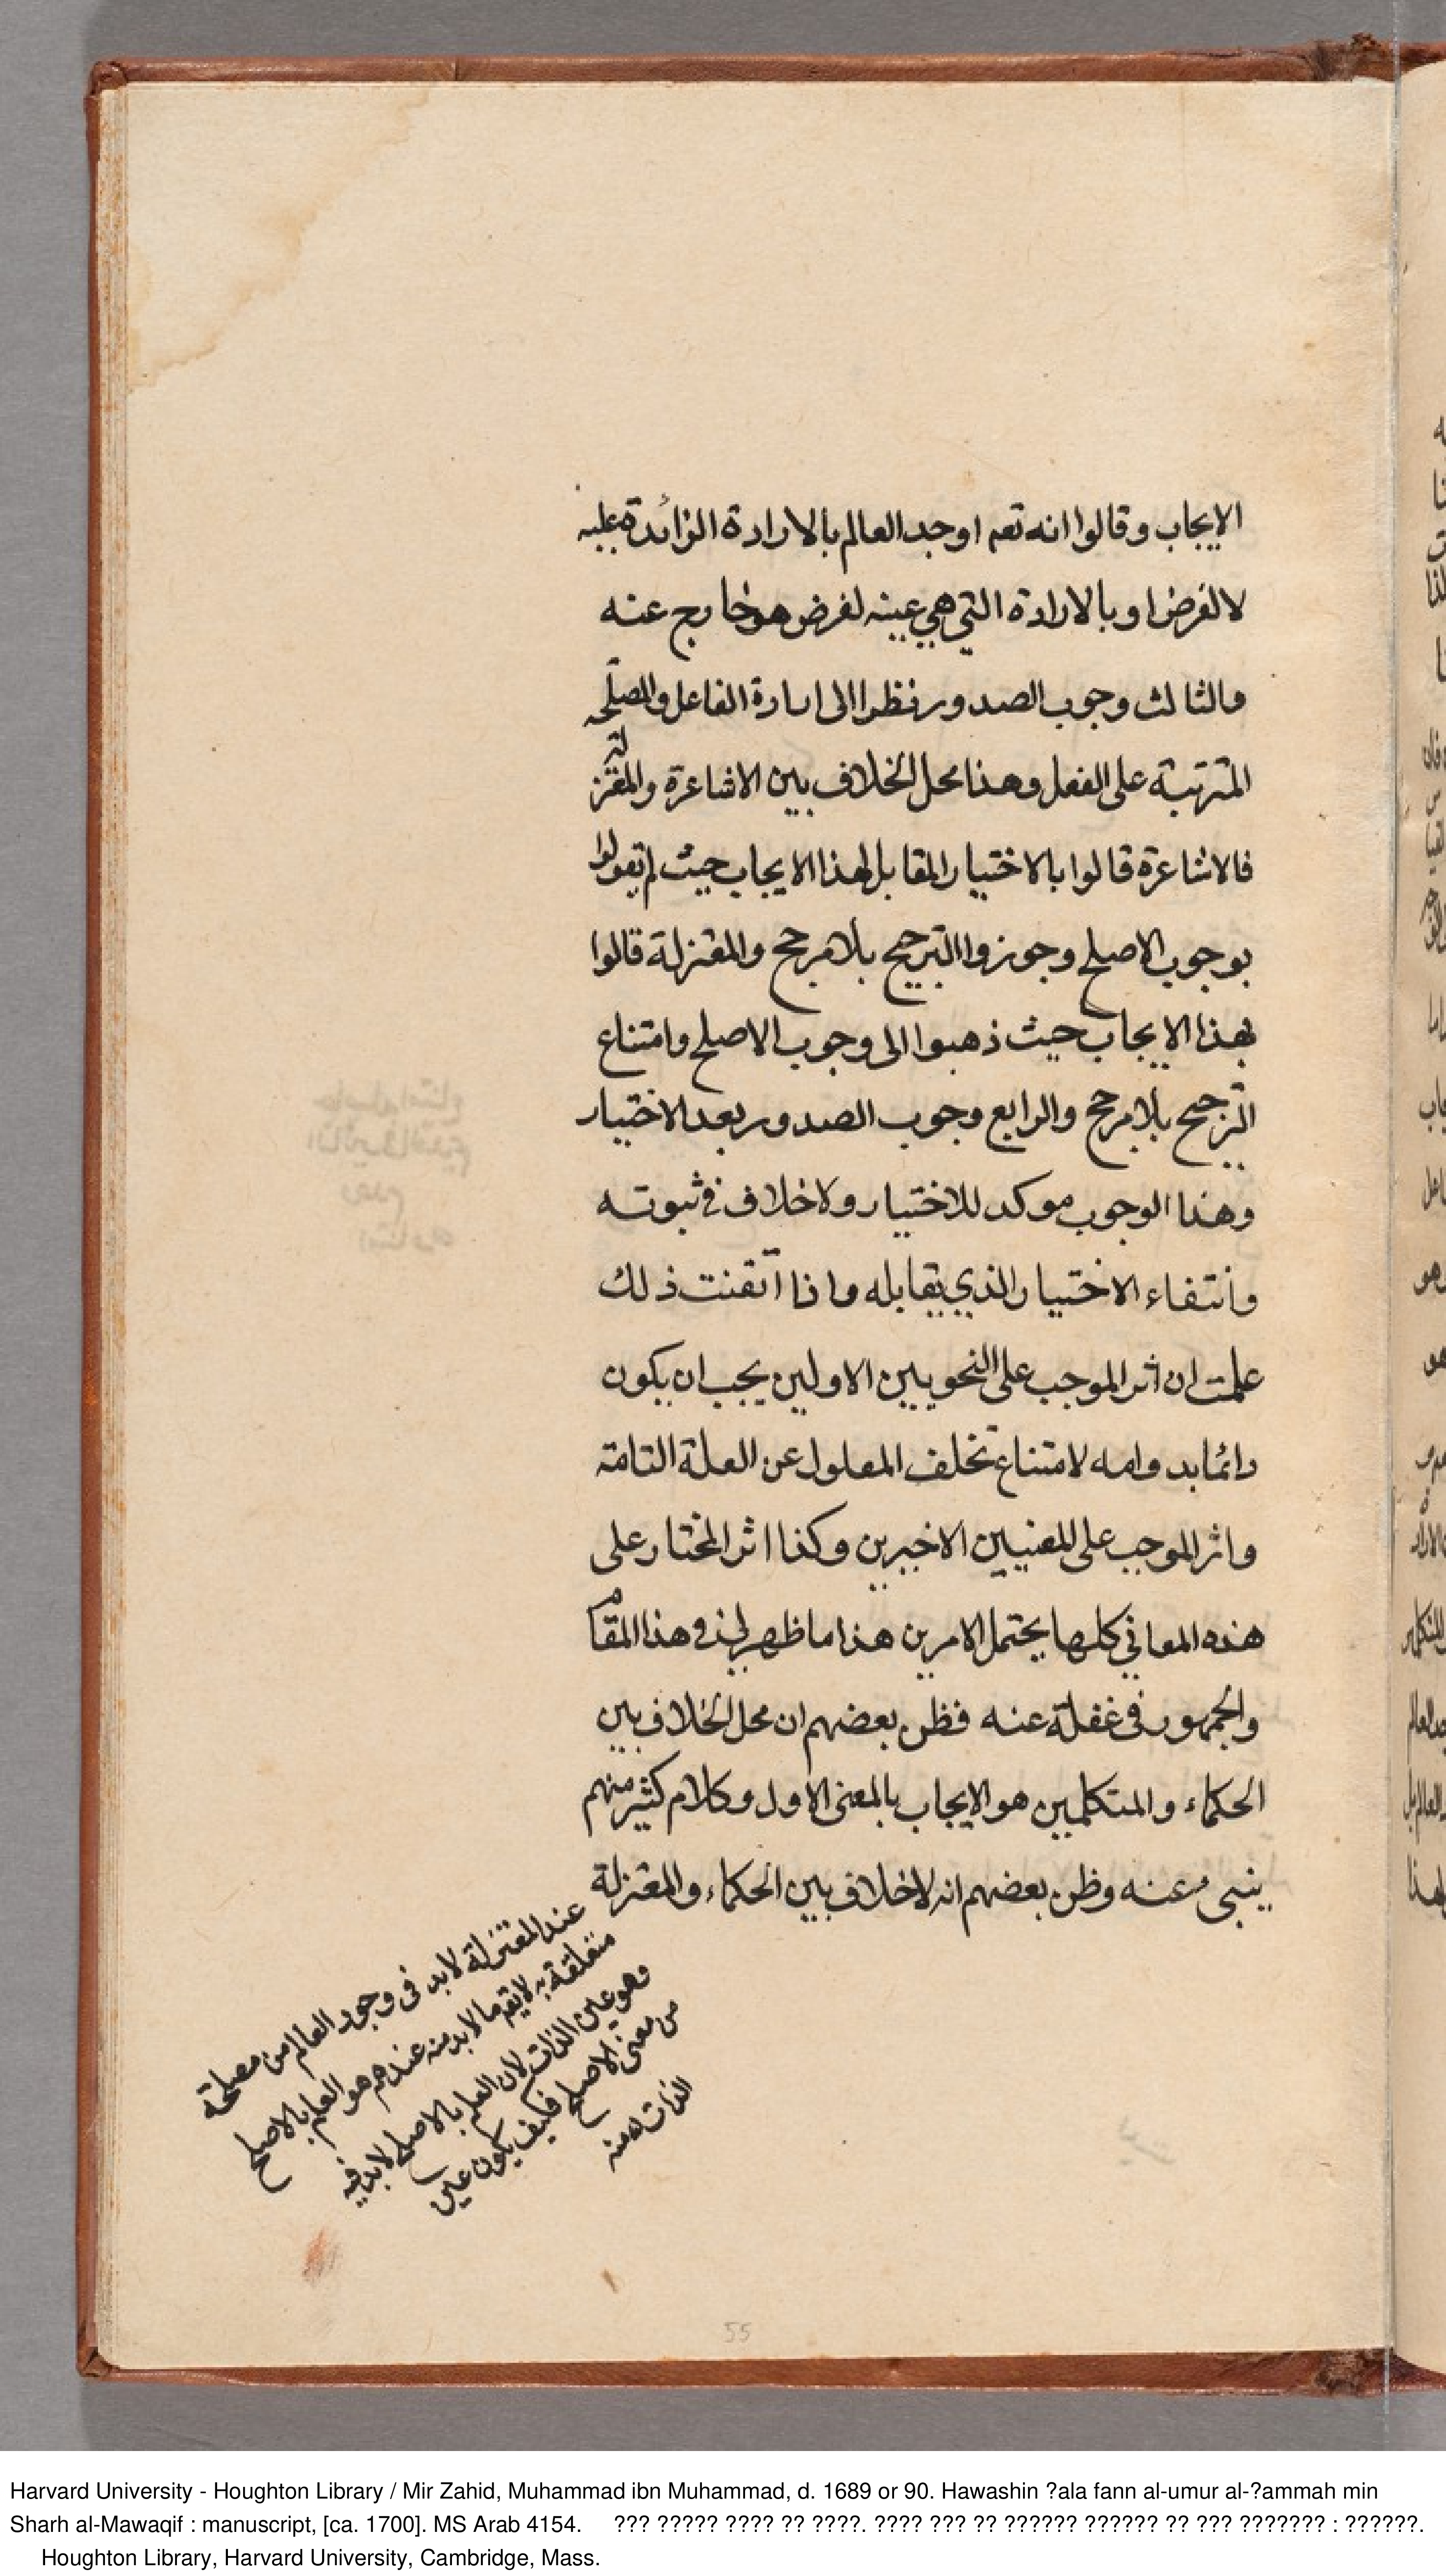 الايجاب وقالوا انه تعم اوجد العالم بالارادة الزائدة عليه
لا لغرض او بالارادة التي هي عينه لغرض هو خارج عنه
والثالث وجوب الصدور نظرا الى ارادة الفاعل والمصلحة
المترتبة على الفعل وهذا محل الخلاف بين الاشاعرة والمعتزلة
فالاشاعرة قالوا بالاختيار المقابل لهذا الايجاب حيث لم يقولوا
بوجوب الاصلح وجوزوا الترجيح بلا مرجح والمعتزلة قالوا
بهذا الايجاب حيث ذهبوا الى وجوب الاصلح وامتناع
الترجيح بلا مرجح والرابع وجوب الصدور بعد الاختيار
وهذا الوجوب موكد للاختيار ولا خلاف في ثبوته
وانتفاء الاختيار الذي يقابله واذا اتقنت ذلك
علمت ان اثر الموجب على النحويين الاولين يجب ان يكون
دائما بدوامه لامتناع تخلف المعلول عن العلة التامة
واثر الموجب على المعنيين الاخيرين وكذا اثر المختار على
هذه المعاني كلها يحتمل الامرين هذا ما ظهر لي في هذا المقام
والجمهور في غفلة عنه فظن بعضهم ان محل الخلاف بين
الحكماء والمتكلمين هو الايجاب بالمعنى الاول وكلام كثير منهم
ينبىء عنه وظن بعضهم انه لا خلاف بين الحكماء والمعتزلة
عند المعتزلة لابد في وجود العالم من مصلحة
متعلقة به لا يقم ما لابد منه عندهم هو العلم بالاصلح
وهو عين الذات لان العلم بالاصلح لابد فيه
من معنى الاصلح فكيف يكون عين
الذات منه
55
Harvard University - Houghton Library / Mir Zahid, Muhammad ibn Muhammad, d. 1689 or 90. Hawashin ?ala fann al-umur al-?ammah min
Sharh al-Mawaqif : manuscript, [ca. 1700]. MS Arab 4154. ??? ????? ???? ?? ????. ???? ??? ?? ?????? ?????? ?? ??? ??????? : ??????.
Houghton Library, Harvard University, Cambridge, Mass.